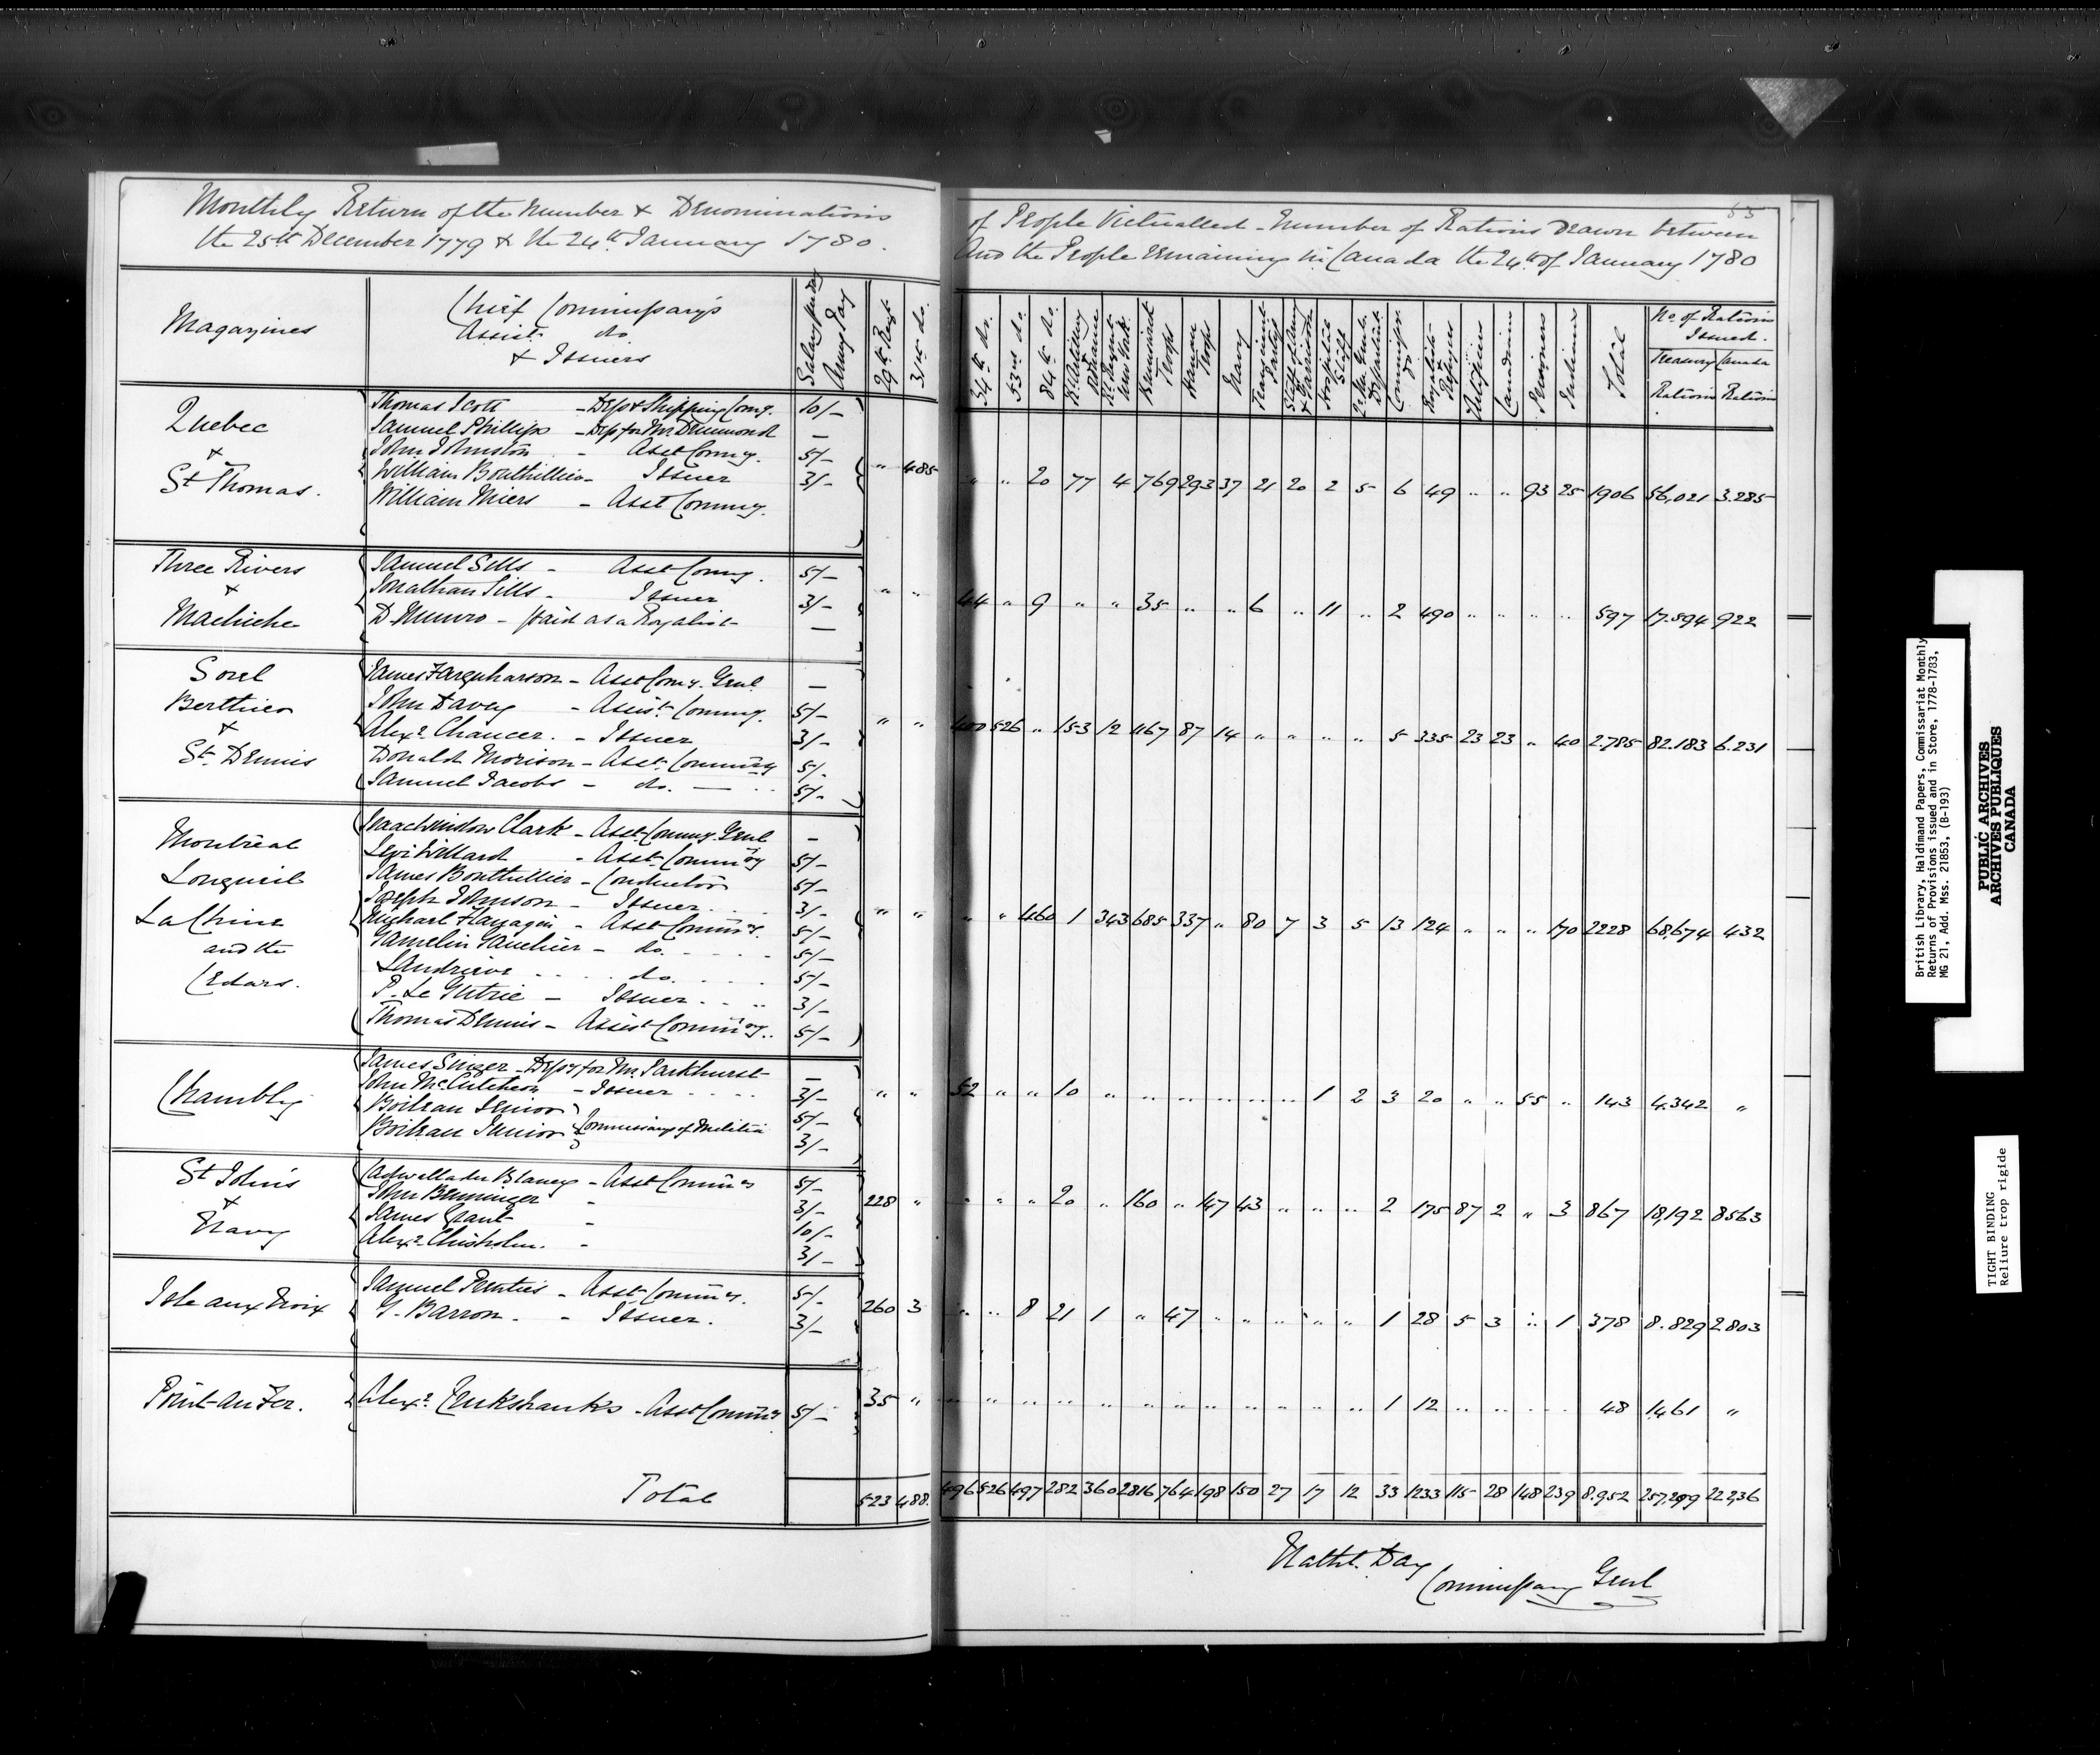 Monthly Return of the Number & Denominations of People Victualled - Number of Rations Drawn between
the 25th December 1779 & the 24th January 1780. And the People remaining in Canada the 24th of January 1780
Magazines
Chief Commissary's
Assist. do
& Issuers
Army Pay
29th Regt
31st do.
34th do.
53rd do.
84th do.
Rl Artillery & Ordnance
Rl Regiment New York
Brunswick Troops
Hanau Troops
Navy
Hospital Staff
Qr. Mr. Genls. Department
Royalists & Refugees
Artificers
Canadians
Prisoners
Indians
Total
No. of Rations
Issued.
Treasury Rations
Canada Rations
Quebec
&
St Thomas.
Thomas Scott - Dep & Shipping Comy. 10/-
Samuel Phillips - Dep for Mr. Drummond -
John Johnston - Asst Commy. 5/-
William Bouthillier - Issuer 3/-
William Miers - Asst Commy.
" 485 " " 20 77 4 769 293 37 21 20 2 5 6 49 " " 93 25 1906 56,021 3.285
Three Rivers
&
Machiche
Samuel Sills - Asst Commy. 5/-
Jonathan Sills - Issuer 3/-
D Munro - paid as a Royalist -
" " 44 " 9 " " 35 " " 6 " 11 " 2 490 " " " " 597 17.594 922
Sorel
Berthier
&
St. Dennis
James Farquharson - Asst Comy. Genl. -
John Davey - Assist. Commy. 5/-
Alexr. Chaucer. - Issuer 3/-
Donald Morison - Asst. Commissy 5/-
Samuel Jacobs - do. - 5/-
" " 400 526 " 153 12 1167 87 14 " " " " 5 335 23 23 " 40 2.785 82.183 6.231
Montreal
Longueil
La Chine
and the
Cedars.
Isaac Winslow Clark - Asst Commy Genl -
Levi Willard - Asst. Commissy 5/-
James Bouthillier - Conductor 5/-
Joseph Johnson - Issuer 3/-
Michael Flanagin - Asst Commissy. 5/-
Gamelin Gaucher - do. 5/-
Landrieve - do. 5/-
P. Le Gutrie - Issuer 3/-
Thomas Dennis - Assist Commissy. 5/-
" " " " 460 1 343 685 337 " 80 7 3 5 13 124 " " " 170 2228 68,674 432
Chambly
James Singer - Depy for Mr. Parkhurst -
John McCutcheon - Issuer 3/-
Boileau Senior 5/-
Boileau Junior } Commissary of Militia 3/-
" " 52 " " 10 " " " " " " 1 2 3 20 " " 55 " 143 4.342 "
St John's
&
Navy
Cadwallader Blaney - Asst Commissy 5/-
John Bunninger - 3/-
James Grant - 10/-
Alexr. Chisholm. - 3/-
228 " " " " 20 " 160 " 147 43 " " " 2 175 87 2 " 3 867 18,192 8563
Isle aux Noix
Samuel Prenties - Asst Commissy. 5/-
G. Barron. - Issuer. 3/-
260 3 " " 8 21 1 " 47 " " " " " 1 28 5 3 " 1 378 8.829 2803
Point au Fer.
Alexr. Cruikshanks - Asst Commissy 5/-
35 " " " " " " " " " " " " " 1 12 " " " " 48 1461 "
Total 523 488. 496 526 497 282 360 2816 764 198 150 27 17 12 33 1233 115 28 148 239 8.952 257,299 22236
Nathl. Day
Commissary Genl
British Library, Haldimand Papers, Commissariat Monthly
Returns of Provisions issued and in Store, 1778-1783,
MG 21, Add. Mss. 21853, (B-193)
PUBLIC ARCHIVES
ARCHIVES PUBLIQUES
CANADA
TIGHT BINDING
Reliure trop rigide